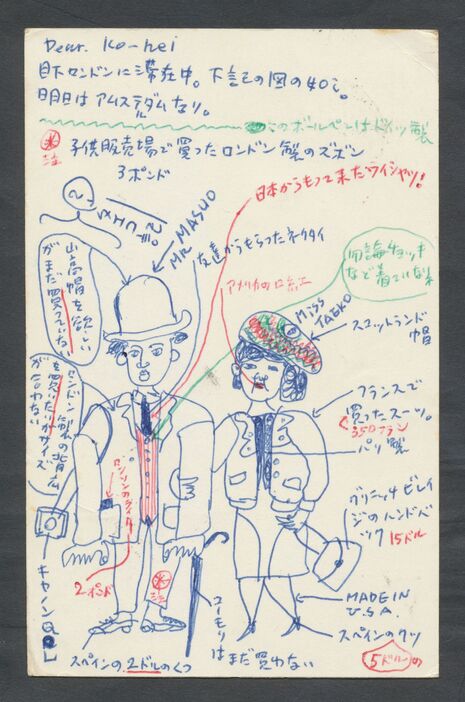 Dear. Ko-hei
目下ロンドンに滞在中。下記の図の如し。
明日はアムステルダムなり。
このボールペンはドイツ製
※注 子供販売場で買ったロンドン製のズボン
3ポンド
MR MASUO
日本からもって来たワイシャツ!
友達からもらったネクタイ
山高帽を欲しい
がまだ買っていない
アメリカの口紅
勿論チョッキ
など着ていない
MISS TAEKO
スコットランド
帽
ロンドン製の背広
を買いたいがサイズ
が合わない
フランスで
買ったスーツ。
350フラン
パリ製
ロンソンのライター
2ポンド
グリニッチビレイ
ジのハンドバ
ック 15ドル
※注
キャノンQL
コーモリはまだ買わない
MADE IN
U.S.A.
スペインのクツ
5ドルの
スペインの2ドルのくつ